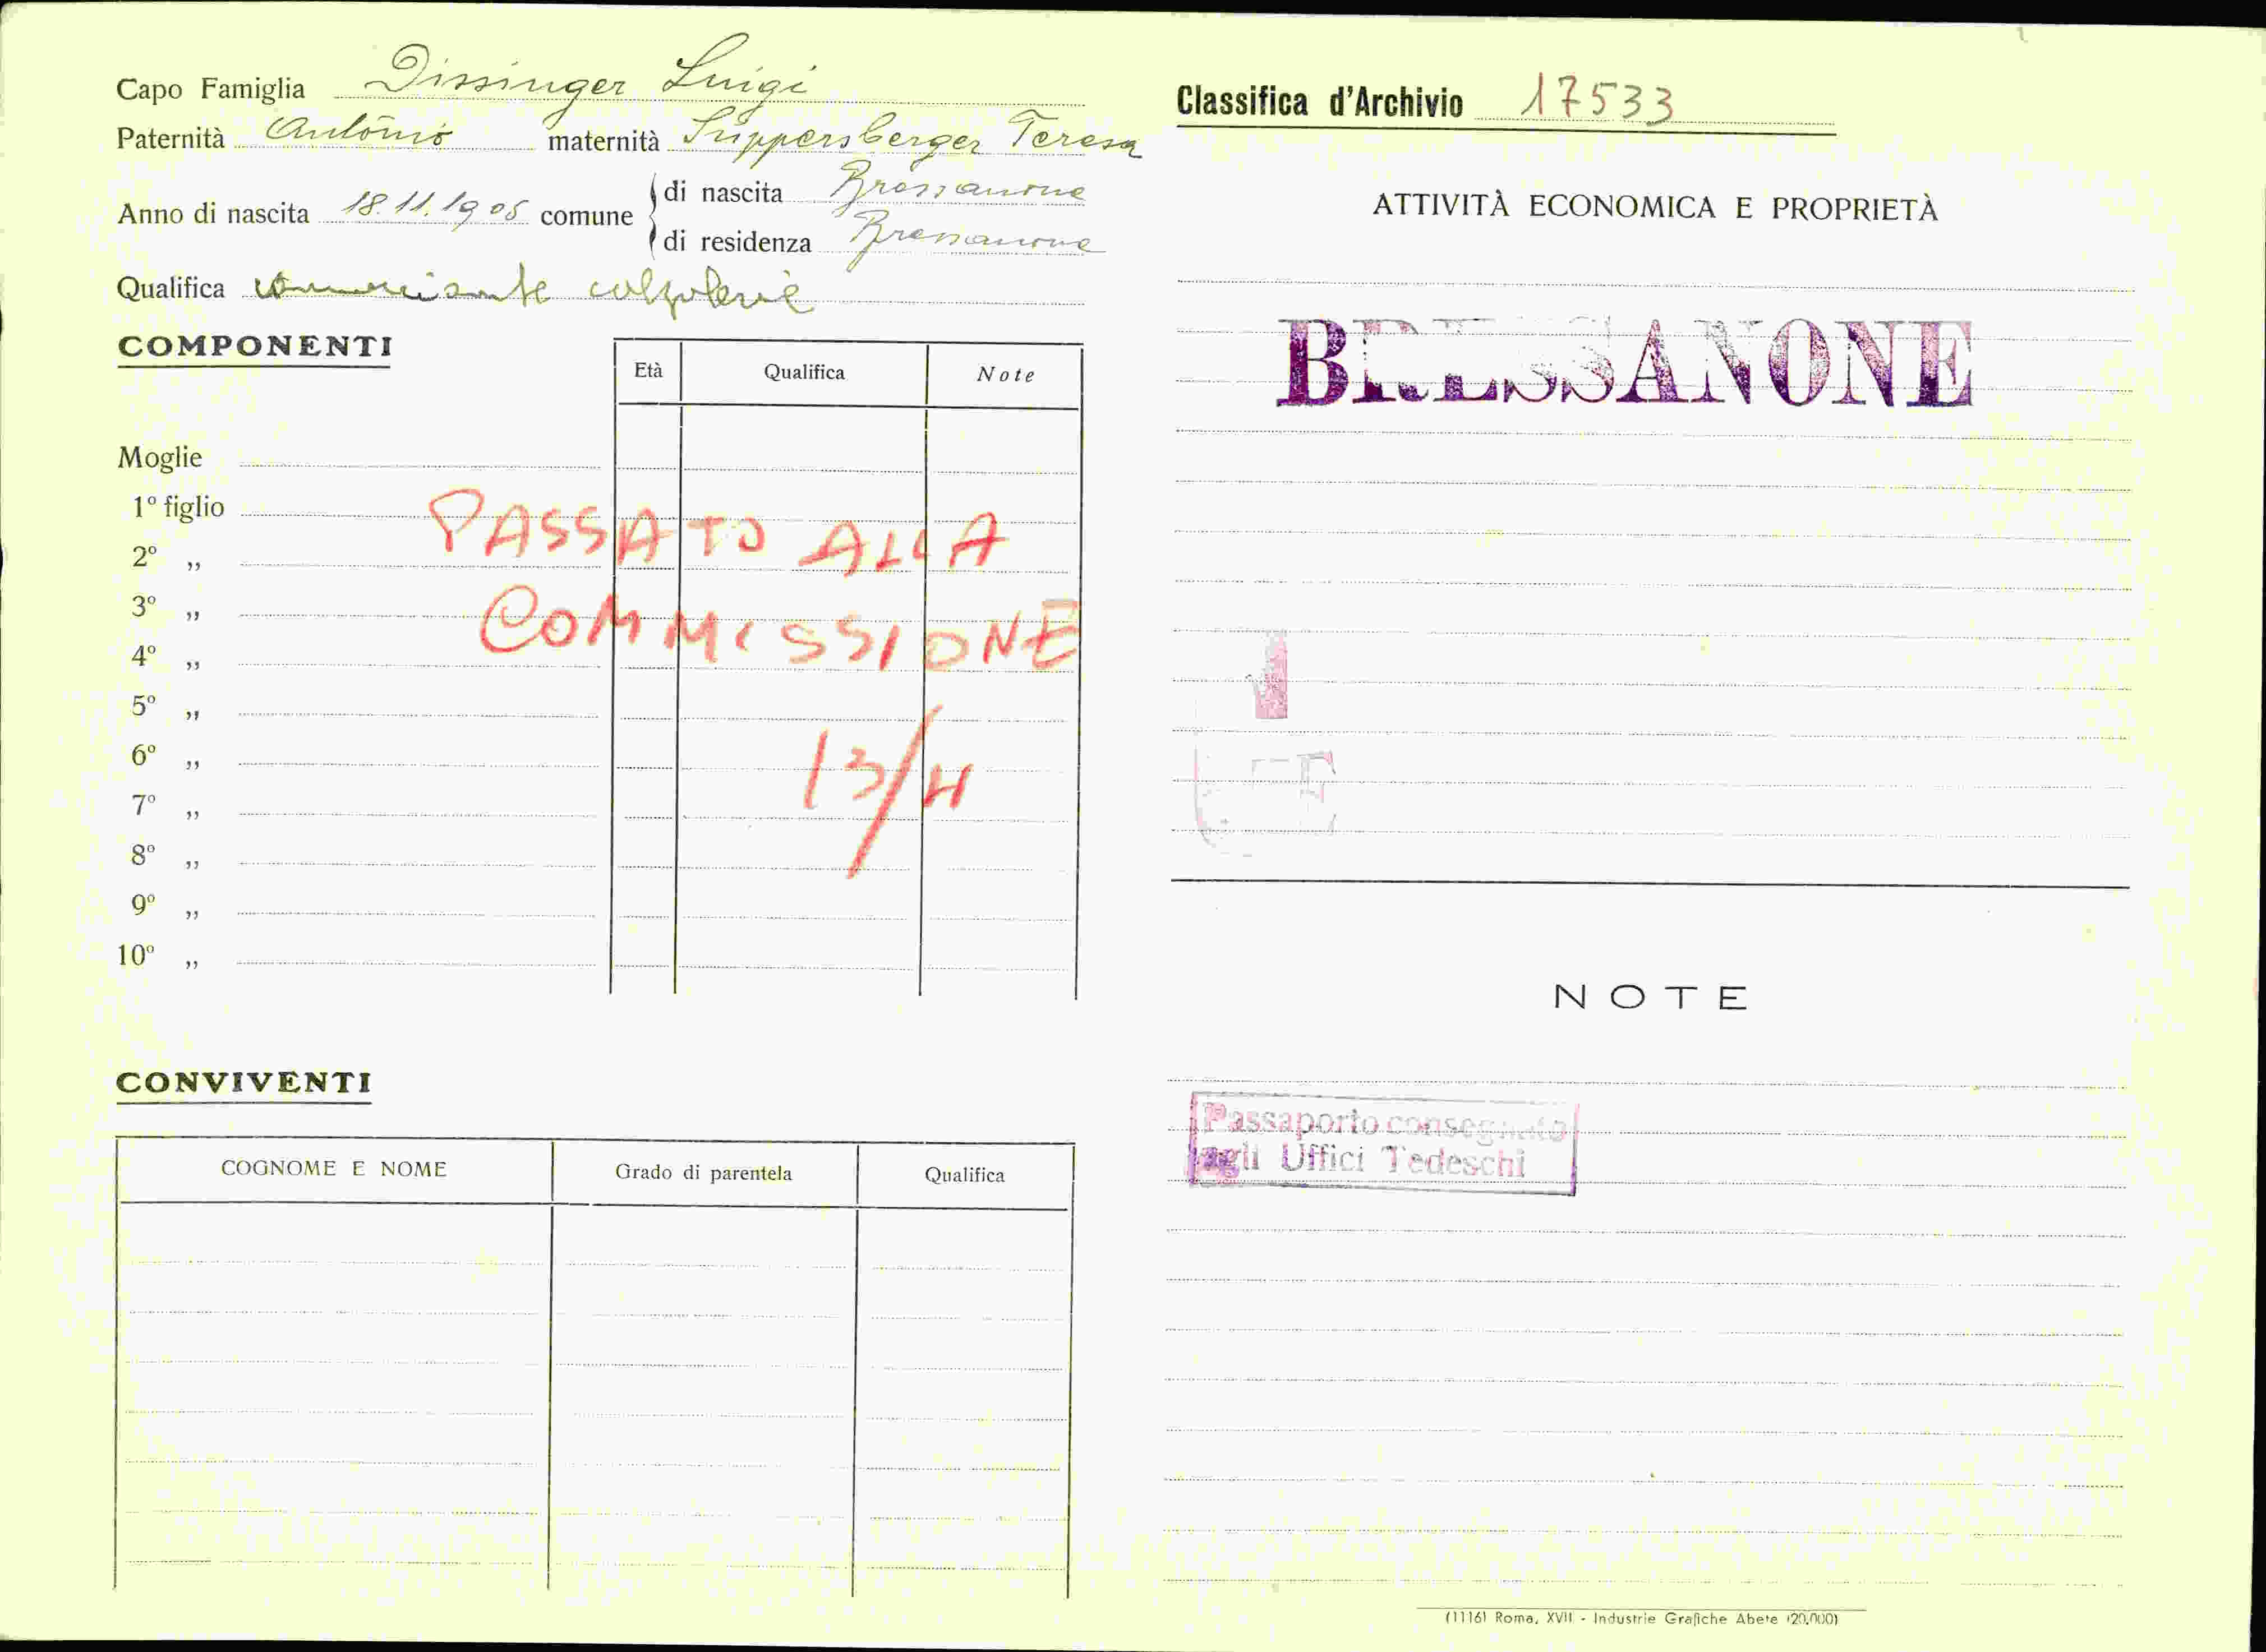 Capo Famiglia Dissinger Luigi
Paternità Antonio maternità Suppersberger Teresa
Anno di nascita 18.11.1905 comune
di nascita Bressanone
di residenza Bressanone
Qualifica commerciante calzolerie
COMPONENTI
Età Qualifica Note
Moglie
1º figlio
2º „
3º „
4º „
5º „
6º „
7º „
8º „
9º „
10º „
PASSATO ALLA
COMMISSIONE
13/4
CONVIVENTI
COGNOME E NOME Grado di parentela Qualifica
Classifica d'Archivio 17533
ATTIVITÀ ECONOMICA E PROPRIETÀ
BRESSANONE
NOTE
Passaporto consegnato
agli Uffici Tedeschi
(1116) Roma, XVII - Industrie Grafiche Abete (20.000)